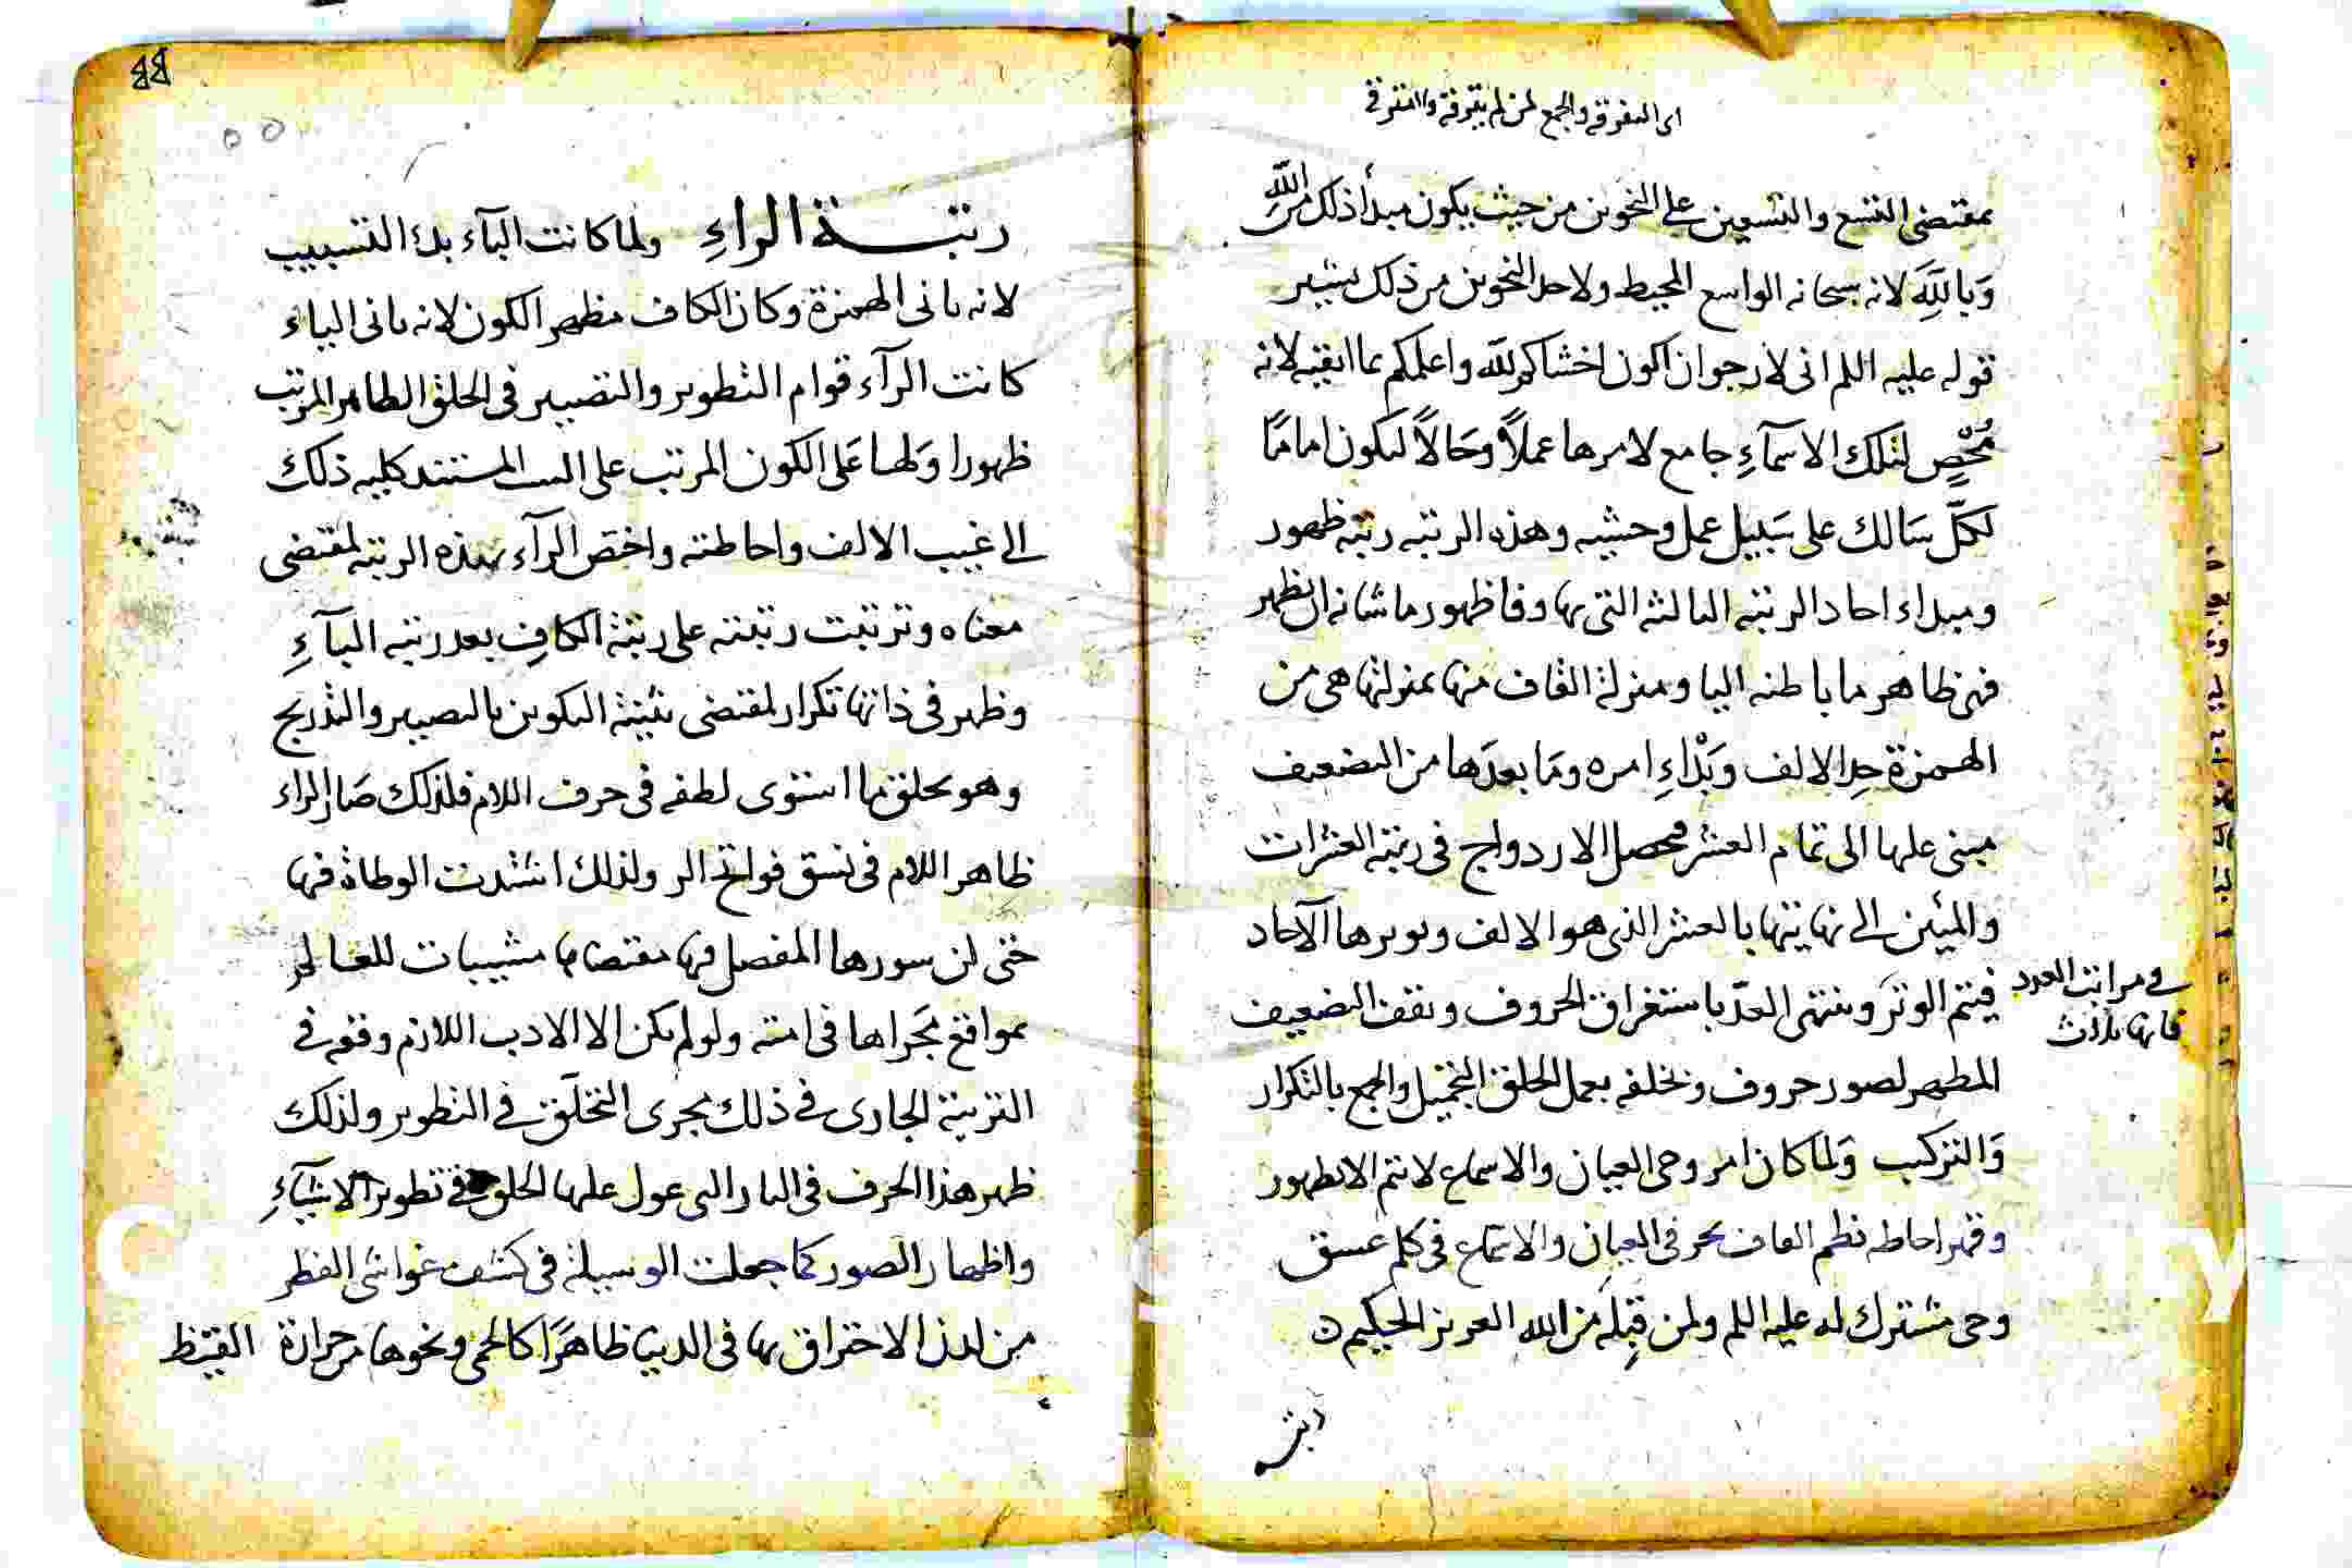 اى التفرقة والجمع لمن لم يتفرقه وا
بمقتضى التسع والتسعين على النحوين من حيث يكون مبدأ ذلك من الله
وَبِاللَّهِ لانه سبحانه الواسع المحيط ولاحد النحوين من ذلك يشير
قوله عليه السلم انى لارجو ان اكون اخشاكم لله واعلمكم بما اتقيه لانه
مُحْصٍ لتلك الاسمآءِ جامع لامرها عملاً وَحَالاً ليكون اماما
لكلّ سَالك على سَبيل عمل وخشيه وهذه الرتبه رتبة ظهور
ومبداء احاد الرتبه الثالثة التى بها وفا ظهور ما شانه ان يظهر
فهى ظاهر ما باطنه اليا ومنزلة القاف منها بمنزلتها هى من
الهمزة حدا لالف وَبَدْاءِ امره ومَا بعدَها من التضعيف
مبنى عليها الى تمام العشر فيحصل الازدواج فى رتبة العشرات
والمئين الى نهايتها بالعشر الذى هو الالف ويوترها الآحاد
فيتم الوتر وينتهى العدّ باستغراق الحروف ويقف التضعيف
فى مراتب العدد
فانها ثلاث
المظهر لصور حروف وتخلفه بعمل الخلق التخييل والجمع بالتكرار
وَالتركيب وَلما كان امر وحى العيان والاسماع لا يتم الا بظهور
وقهر احاطه نظم القاف بحرفى العيان والاسماع فى كلم عسق
وحى مشترك له عليه السلم ولمن قبله من الله العزيز الحكيم
رتبة
رتبــة الراءِ ولما كانت البآء بدء التسبيب
لانه ثانى الهمزة وكان الكاف مظهر الكون لانه ثانى الياء
كانت الرآء قوام التطوير والتصيير فى الخلق الظاهر المرتب
ظهورا وَلها عَلى الكون المرتب على السبب المستند كليه ذلك
الى غيب الالف واحاطته واختص الرآء بهذه الرتبه لمقتضى
معناه وترتبت رتبته على رتبة الكاف بعد رتبه البآءِ
وظهر فى ذاتها تكرار لمقتضى تثنية التكوين بالتصيير والتدريج
وهو يخلق ما استوى لطفه فى حرف اللام فلذلك صَار الراء
ظاهر اللام فى نسق فواتح الر ولذلك اشتدت الوطاة فيها
حتى ان سورها المفصل فيها مقتضاها مشيبات للعالم
بمواقع مَجراها فى امته ولو لم يكن الا الادب اللازم وقعه فى
التربية الجارى فى ذلك مجرى التخلّق فى التطوير ولذلك
ظهر هذا الحرف فى النار التى عول عليها الخلق فى تطوير الاشيآءِ
واظهار الصور كما جعلت الوسيلة فى كشف غواشى الفطر
من لدن الاحتراق بها فى الدنيا ظاهرًا كالحمى ونحوها من حرارة القيظ